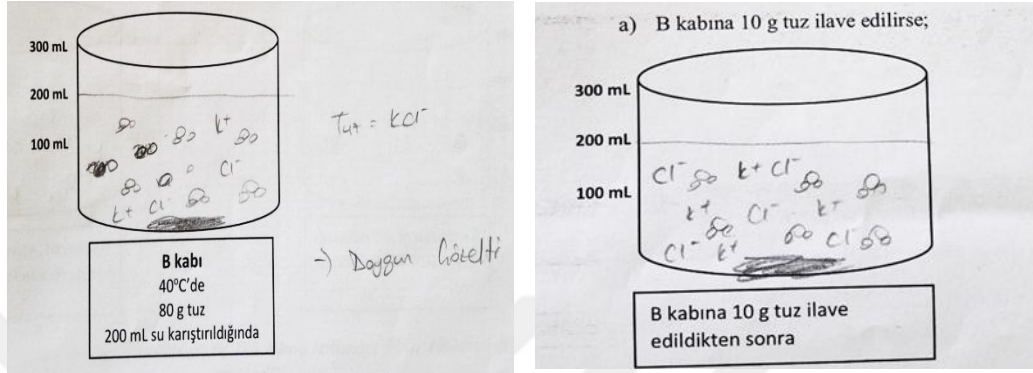 300 mL
200 mL
100 mL
K+
Cl-
K+ Cl-
Tuz = KCl
→ Doygun Çözelti
B kabı
40°C'de
80 g tuz
200 mL su karıştırıldığında
a) B kabına 10 g tuz ilave edilirse;
300 mL
200 mL
100 mL
Cl- K+ Cl-
K+ Cl- K+
Cl- K+ Cl
B kabına 10 g tuz ilave
edildikten sonra